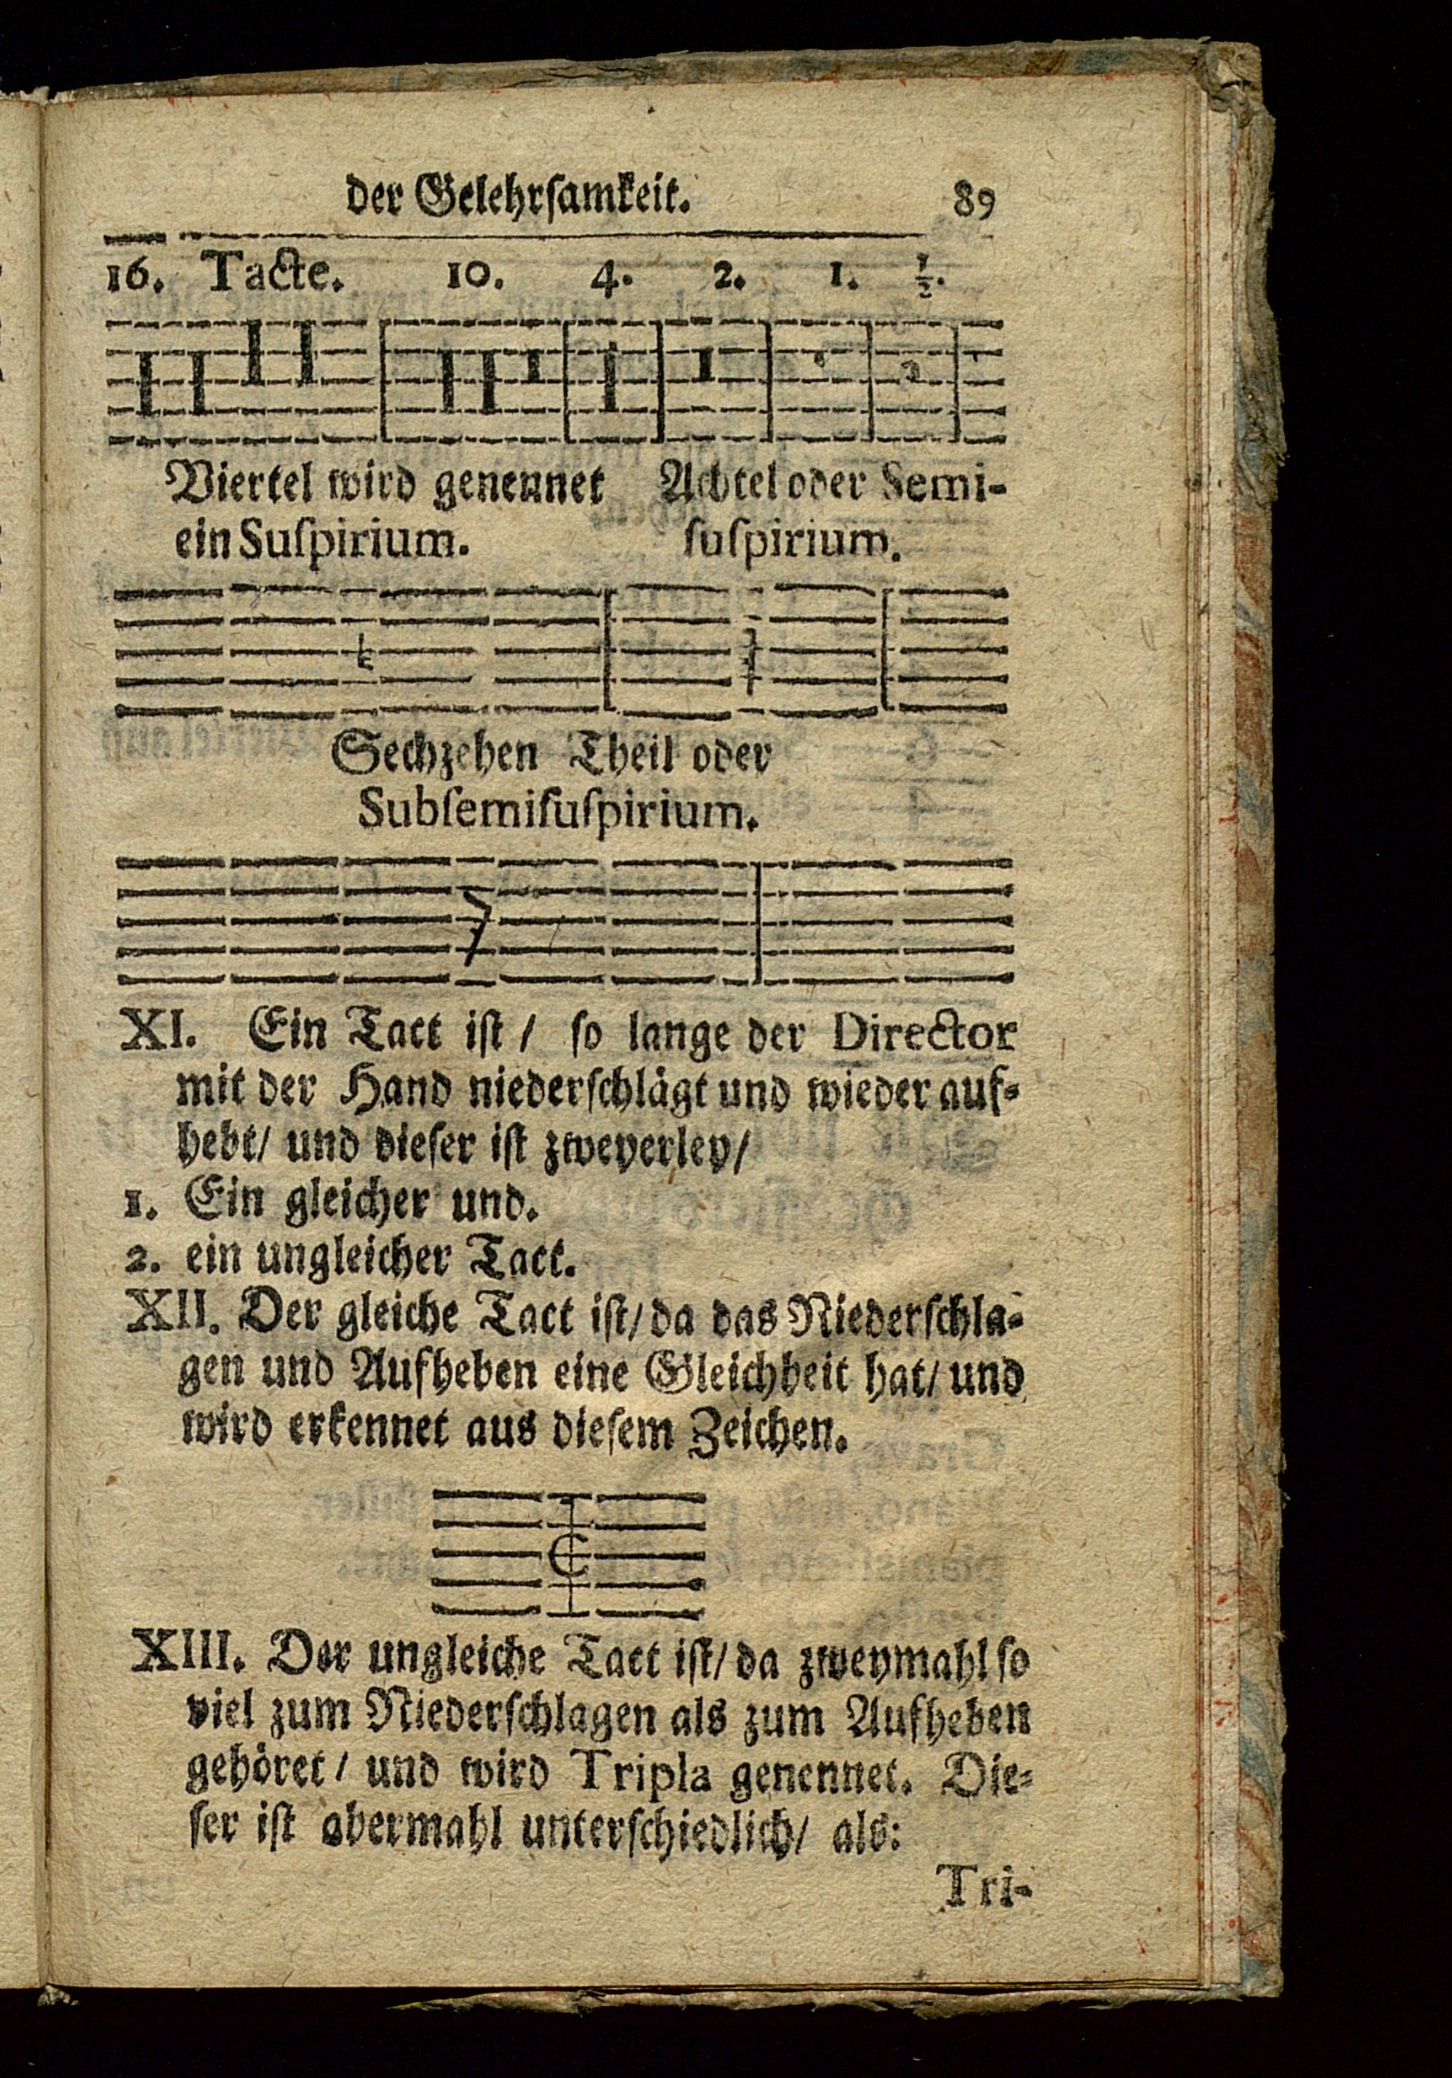 der Gelehrſamkeit. 89
16. Tacte. 10. 4. 2. 1. ½.
Viertel wird genennet Achtel oder Semi-
ein Suſpirium. ſuſpirium.
Sechzehen Theil oder
Subſemiſuſpirium.
XI. Ein Tact iſt / ſo lange der Director
mit der Hand niederſchlägt und wieder auf-
hebt/ und dieſer iſt zweyerley/
1. Ein gleicher und.
2. ein ungleicher Tact.
XII. Der gleiche Tact iſt/ da das Niederſchla-
gen und Aufheben eine Gleichheit hat/ und
wird erkennet aus dieſem Zeichen.
XIII. Der ungleiche Tact iſt/ da zweymahl ſo
viel zum Niederſchlagen als zum Aufheben
gehöret / und wird Tripla genennet. Die-
ſer iſt abermahl unterſchiedlich/ als:
Tri-